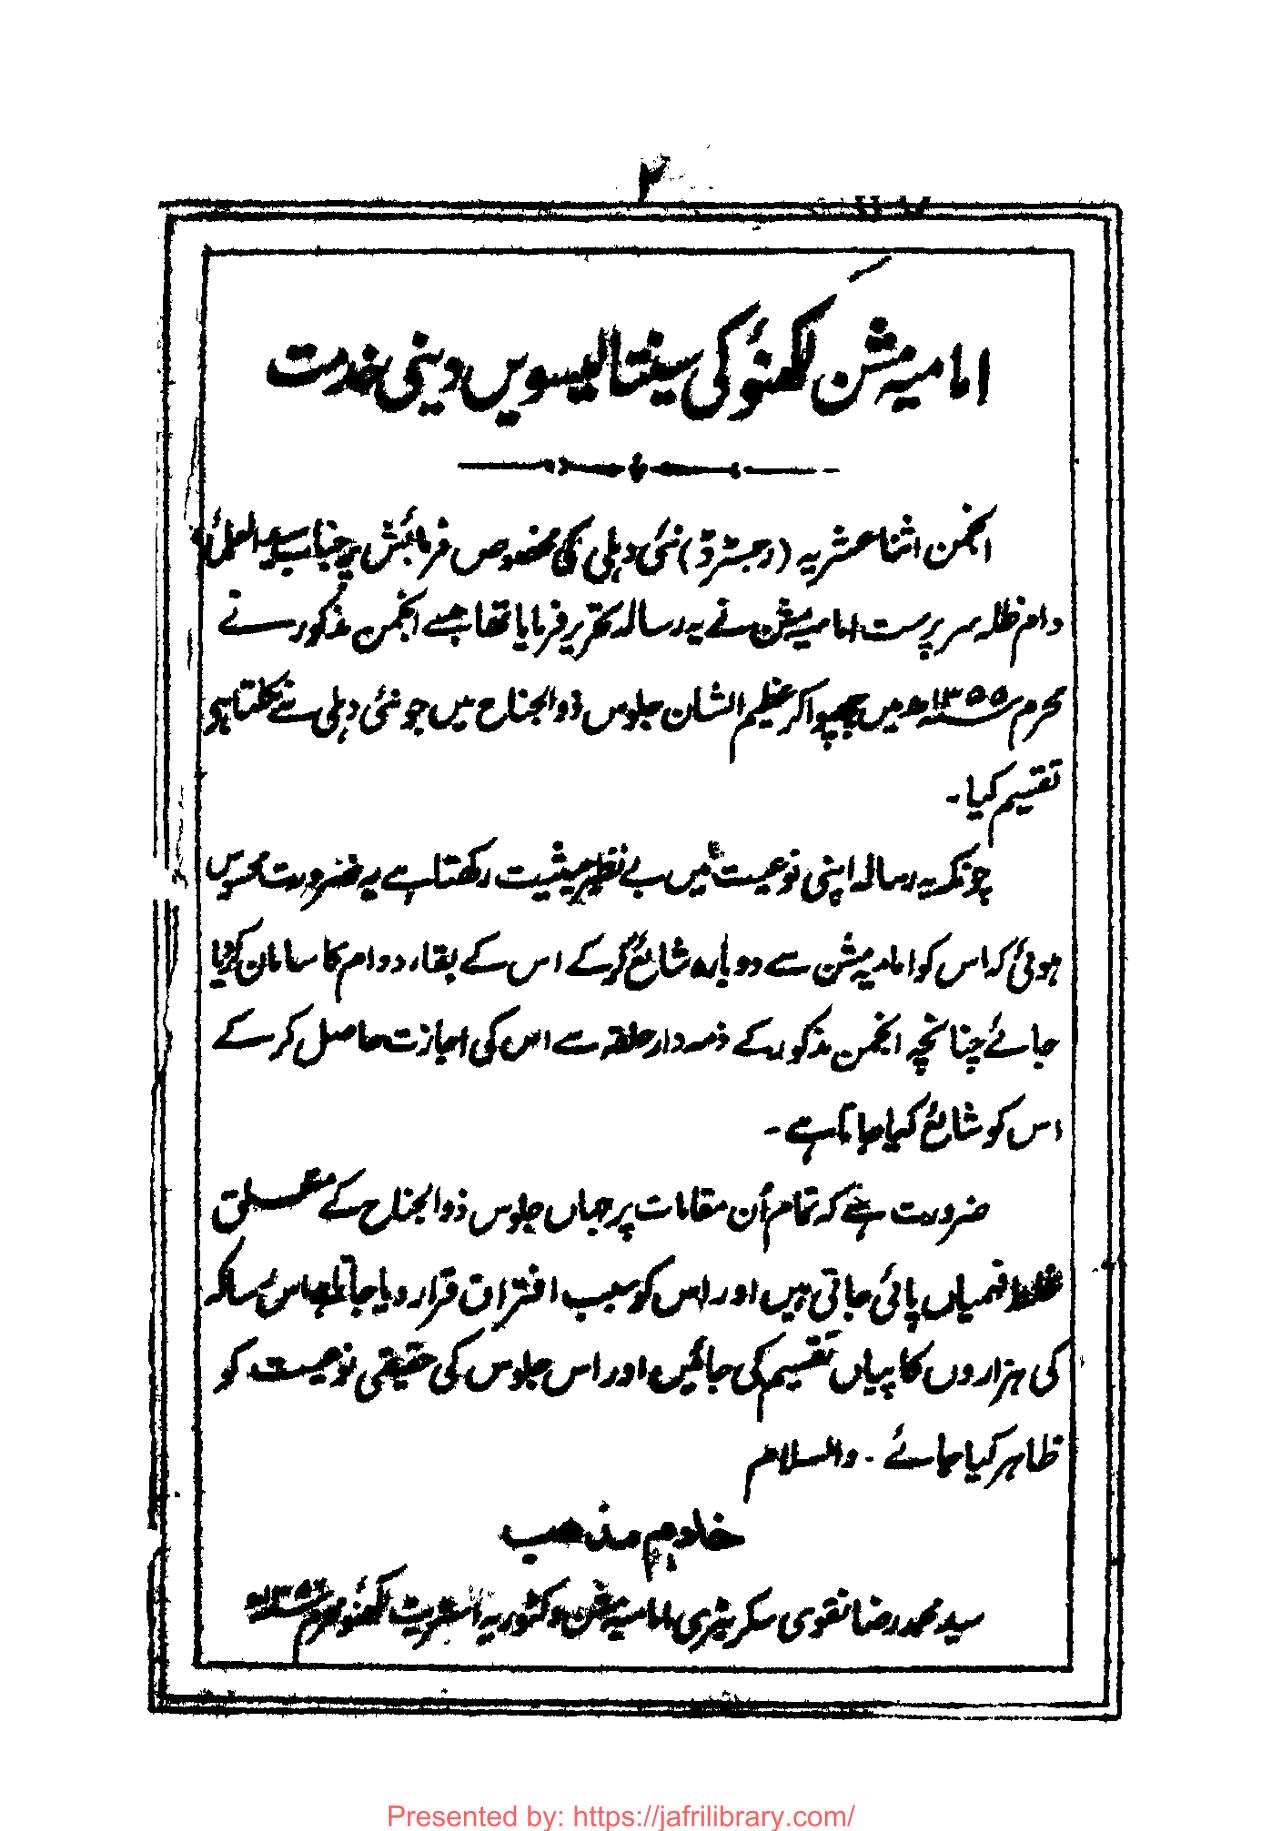 ۲
امامیہ مشن لکھنؤ کی سینتالیسویں دینی خدمت
انجمن اثنا عشریہ (رجسٹرڈ) نئی دہلی کی مخصوص فرمائش پر جناب سید العلماء
دام ظلہ سرپرست امامیہ مشن نے یہ رسالہ تحریر فرمایا تھا جسے انجمن مذکور نے
محرم ۱۳۵۵ھ میں چھپوا کر عظیم الشان جلوس ذوالجناح میں جو نئی دہلی سے نکلتا ہے
تقسیم کیا۔
چونکہ یہ رسالہ اپنی نوعیت میں بے نظیر حیثیت رکھتا ہے یہ ضرورت محسوس
ہوئی کہ اس کو امامیہ مشن سے دوبارہ شائع کر کے اس کے بقاء دوام کا سامان کیا
جائے چنانچہ انجمن مذکور کے ذمہ دار حلقہ سے اس کی اجازت حاصل کر کے
اس کو شایع کیا جاتا ہے۔
ضرورت ہے کہ تمام اُن مقامات پر جہاں جلوس ذوالجناح کے متعلق
غلط فہمیاں پائی جاتی ہیں اور اس کو سبب افتراق قرار دیا جاتا ہے اس رسالہ
کی ہزاروں کاپیاں تقسیم کی جائیں اور اس جلوس کی حقیقی نوعیت کو
ظاہر کیا جائے۔ والسلام
خادم مذہب
سید محمد رضا نقوی سکریٹری امامیہ مشن وکٹوریہ اسٹریٹ لکھنؤ محرم ۱۳۵۶ھ
Presented by: https://jafrilibrary.com/